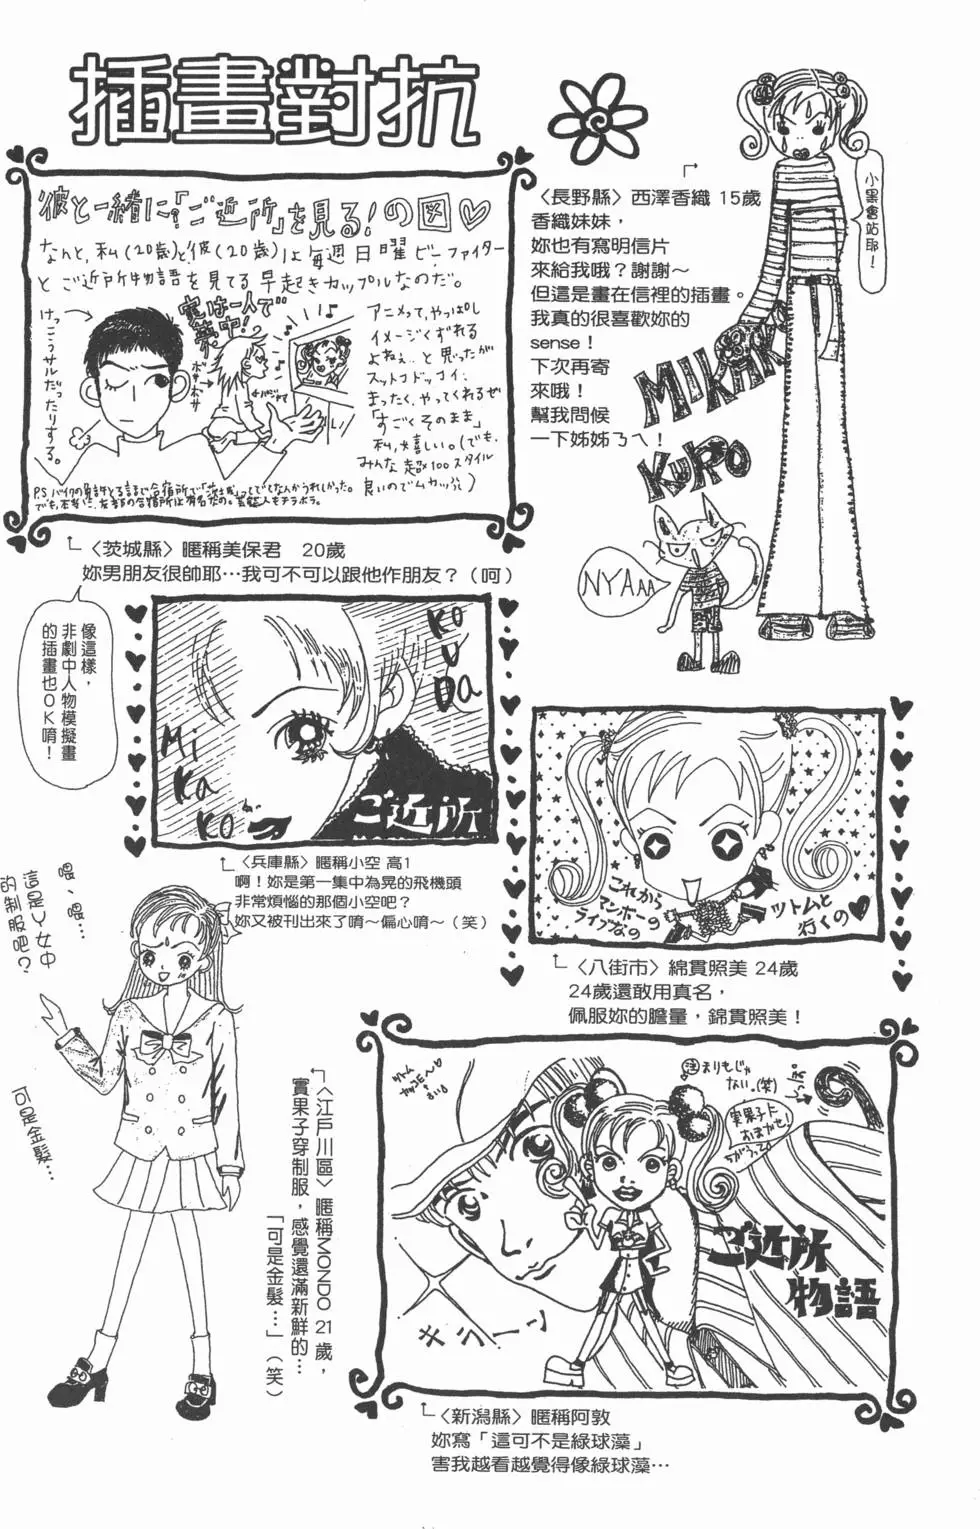 插畫對抗
彼と一緒に?「ご近所」を見る!の図♡
なんと、私(20歳)と彼(20歳)は毎週日曜ビーファイター
とご近所物語を見てる早起きカップルなのだ。
けっこうサルだったりする。
実は一人で
夢中!
ボサボサ
アニメって、やっぱし
イメージくずれる
よねぇ…と思ったが
スットコドッコイ!
まったく、やってくれるぜ
「すごくそのまま」
私は嬉しい。(でも、
みんな超100スタイル
良いのでムカッ)
〈茨城縣〉暱稱美保君 20歲
妳男朋友很帥耶…我可不可以跟他作朋友?(呵)
〈長野縣〉西澤香織 15歲
香織妹妹,
妳也有寫明信片
來給我哦?謝謝~
但這是畫在信裡的插畫。
我真的很喜歡妳的
sense!
下次再寄
來哦!
幫我問候
一下姊姊ㄋㄟ!
小黑會站耶!
MIKAKO
KURO
NYAaa
像這樣,
非劇中人物模擬畫
的插畫也OK唷!
KOUDa
MiKaKo
ご近所
〈兵庫縣〉暱稱小空 高1
啊!妳是第一集中為晃的飛機頭
非常煩惱的那個小空吧?
妳又被刊出來了唷~偏心唷~(笑)
これから
マンボーの
ライブなの
ツトムと
行くの♥
〈八街市〉綿貫照美 24歲
24歲還敢用真名,
佩服妳的膽量,錦貫照美!
喂、喂……
這是Y女中
的制服吧?
可是金髮…
〈江戸川區〉暱稱MONDO 21歲,
實果子穿制服,感覺還滿新鮮的…
「可是金髮…」(笑)
ツトム
注 まりもじゃ
ない。(笑)
実果子に
おまかせ!
ちがうって
キラーン
ご近所
物語
〈新潟縣〉暱稱阿敦
妳寫「這可不是綠球藻」
害我越看越覺得像綠球藻…